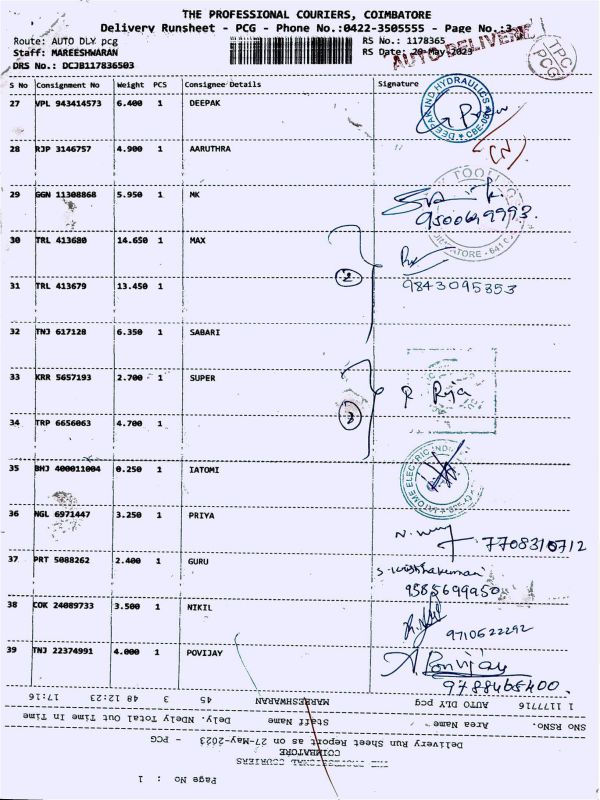 THE PROFESSIONAL COURIERS, COIMBATORE
Delivery Runsheet - PCG - Phone No.:0422-3505555 - Page No.:3
Route: AUTO DLY pcg RS No.: 1178365
Staff: MAREESHWARAN RS Date: 20-May-2023
AUTO DELIVERIE
TPC
PCG
DRS No.: DCJB117836503
S No Consignment No Weight PCS Consignee Details Signature
27 VPL 943414573 6.400 1 DEEPAK
DEEPAK IND HYDRAULICS CBE-006
28 RJP 3146757 4.900 1 AARUTHRA
29 GGN 11308868 5.950 1 MK
9500649993.
30 TRL 413680 14.650 1 MAX
2
9843095853
31 TRL 413679 13.450 1
32 TNJ 617128 6.350 1 SABARI
33 KRR 5657193 2.700 1 SUPER
R Raja
34 TRP 6656063 4.700 1
35 BHJ 400011004 0.250 1 IATOMI
36 NGL 6971447 3.250 1 PRIYA
7708310712
37 PRT 5088262 2.400 1 GURU
S. Krishnakumari
9585699950
38 COK 24089733 3.500 1 NIKIL
9710522292
39 TNJ 22374991 4.000 1 POVIJAY
A. Ponvijay
9788465400.
1 1177716 AUTO DLY pcg MAREESHWARAN 45 3 48 12:23 17:16
SNO RSNo. Area Name Staff Name Dely. NDely Total Out Time In Time
Delivery Run Sheet Report as on 27-May-2023 - PCG
COIMBATORE
THE PROFESSIONAL COURIERS
Page No : 1